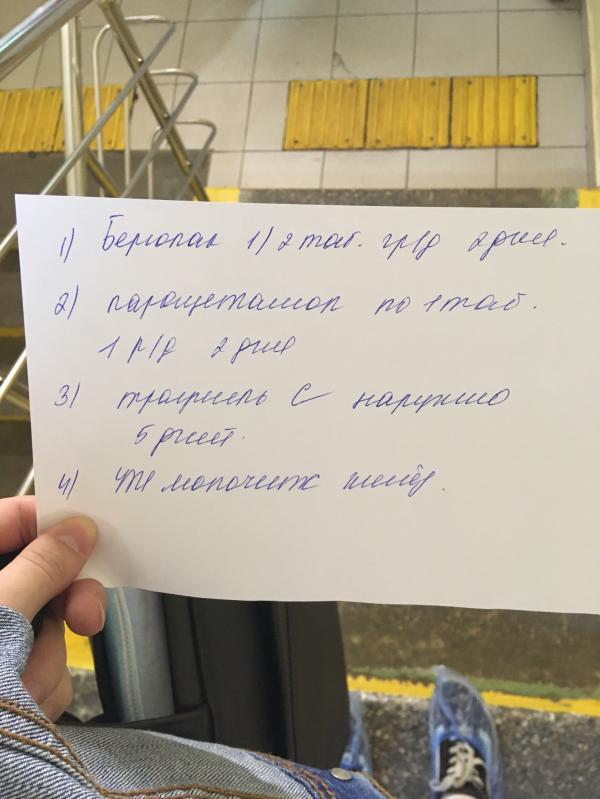 1) 1/2 таб. 1р/д 2 дня.
2) парацетамол по 1 таб.
1 р/д 2 дня
3) траумель С наружно
5 дней.
4) УЗИ молочных желёз.